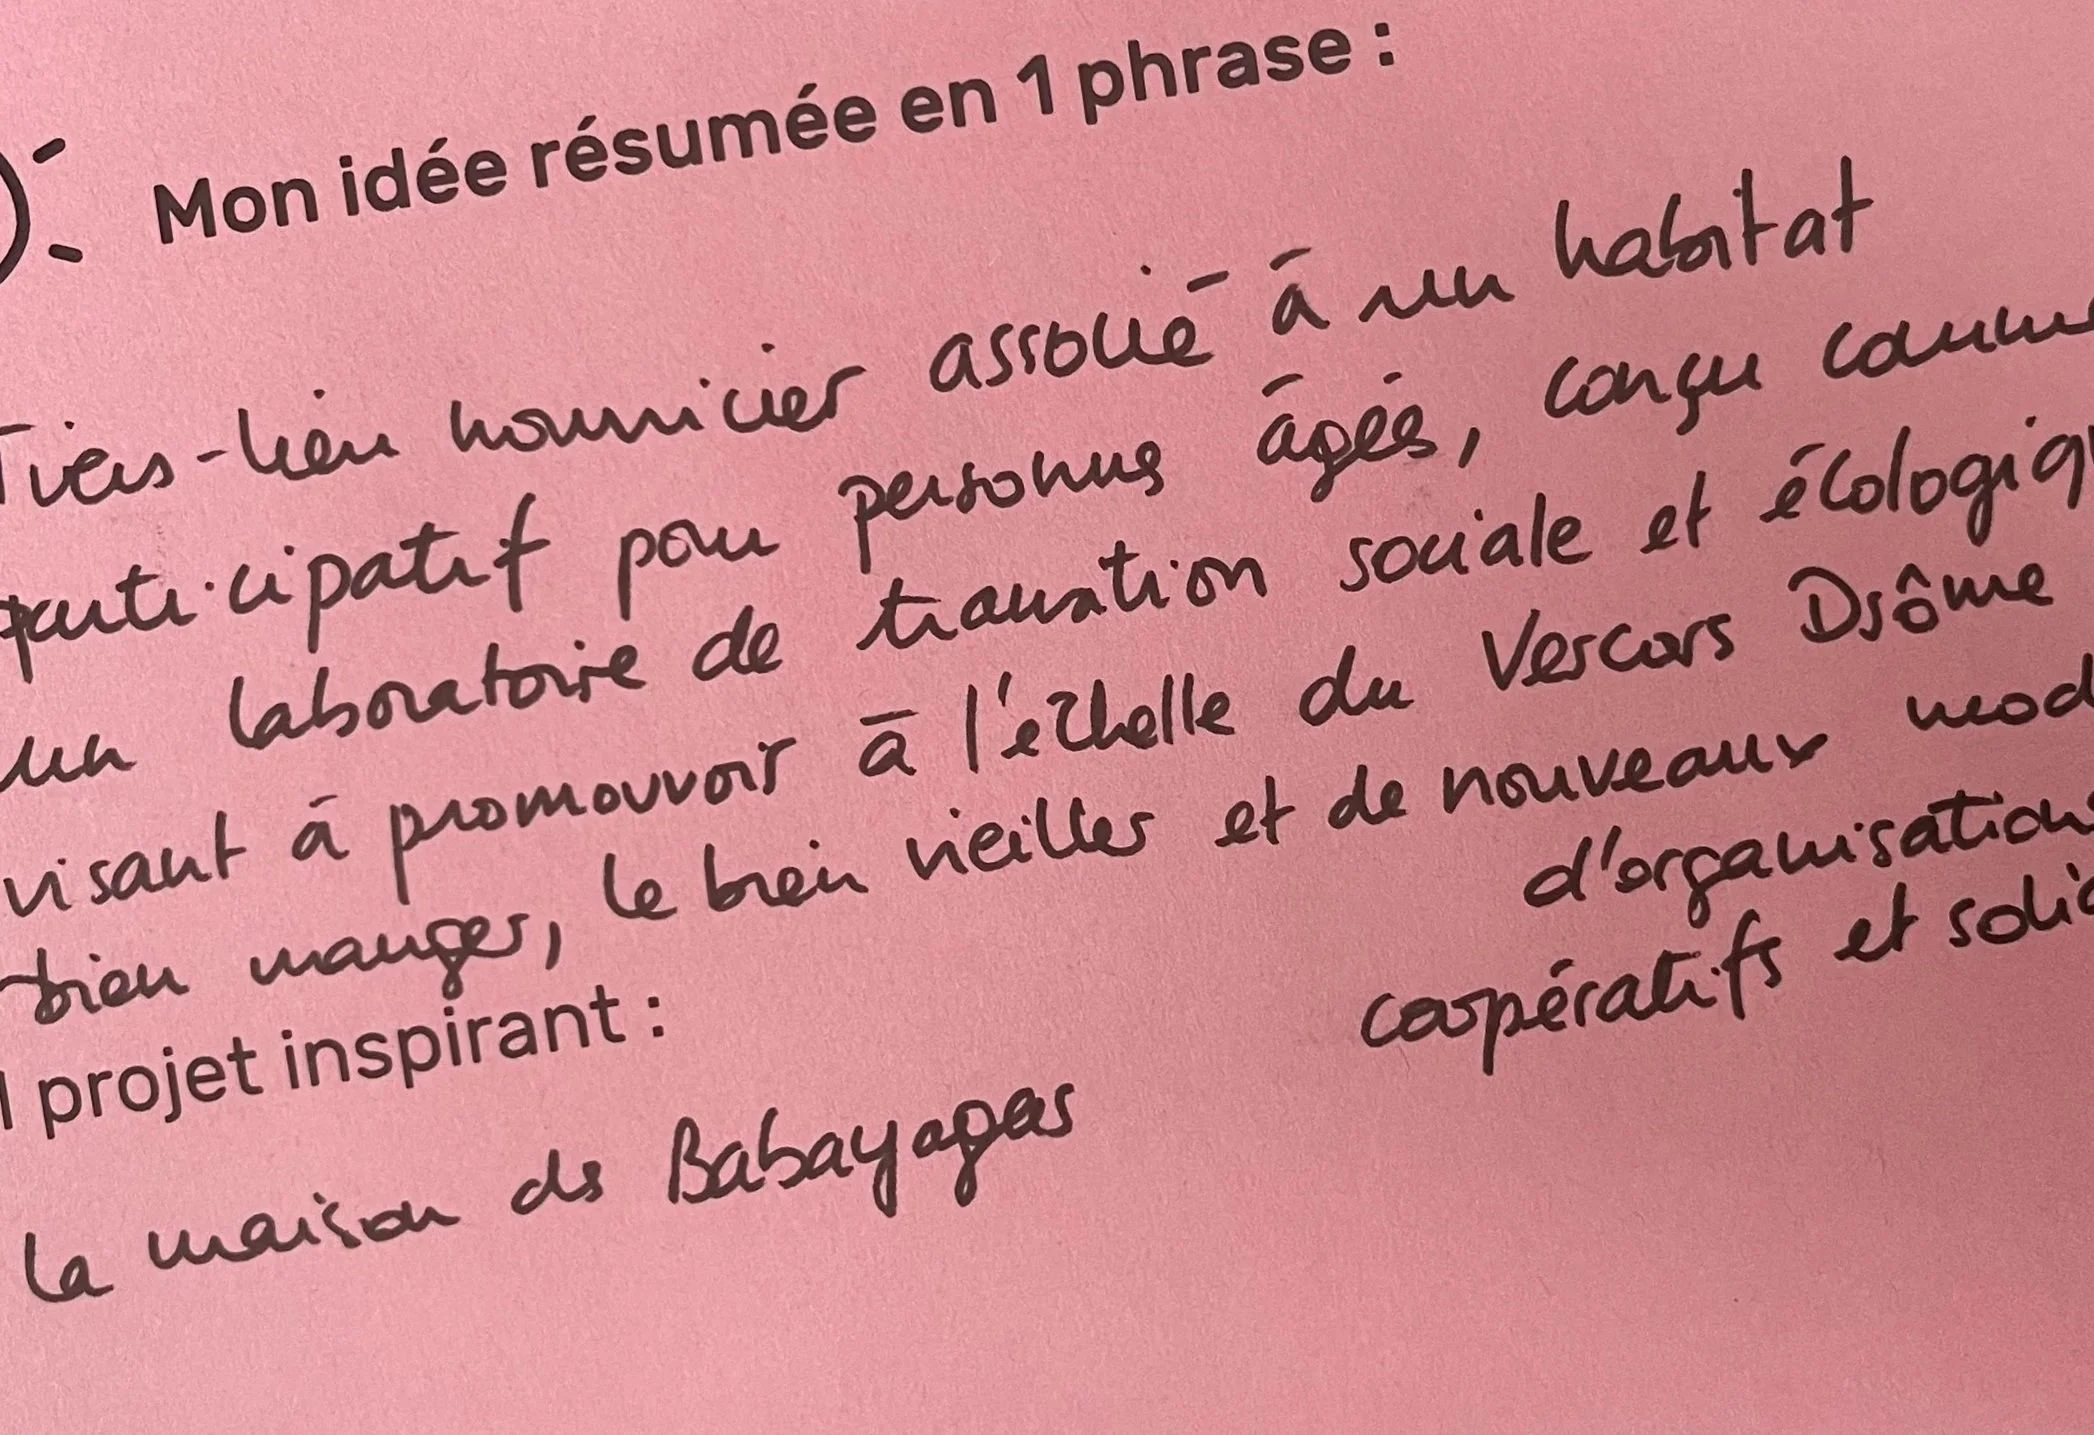 Mon idée résumée en 1 phrase :
Tiers-lieu nourricier associé à un habitat
participatif pour personnes âgées, conçu comme
un laboratoire de transition sociale et écologiq
visant à promouvoir à l'échelle du Vercors Drôme
bien manger, le bien vieillir et de nouveaux mod
d'organisation
coopératifs et soli
1 projet inspirant :
la maison des Babayagas